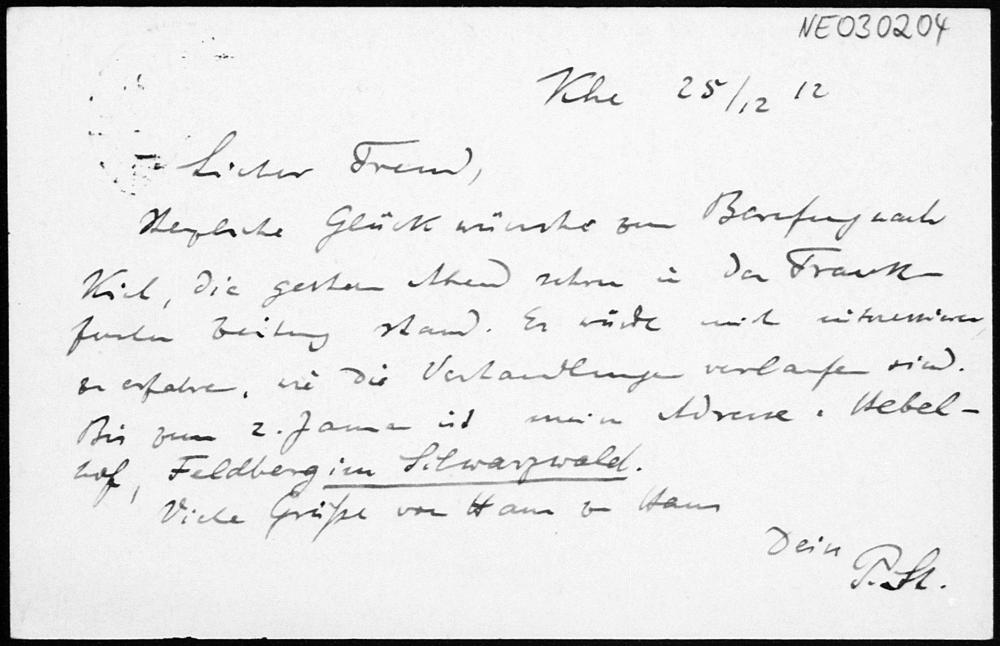 NE030204
Khe 25/12 12
Lieber Freund,
Herzliche Glückwünsche zum Berufung nach
Kiel, die gestern Abend schon in der Frank-
furter Zeitung stand. Es würde mich interessieren,
zu erfahren, wie die Verhandlungen verlaufen sind.
Bis zum 2. Januar ist meine Adresse: Hebel-
hof, Feldberg im Schwarzwald.
Viele Grüße von Haus zu Haus
Dein
P. St.